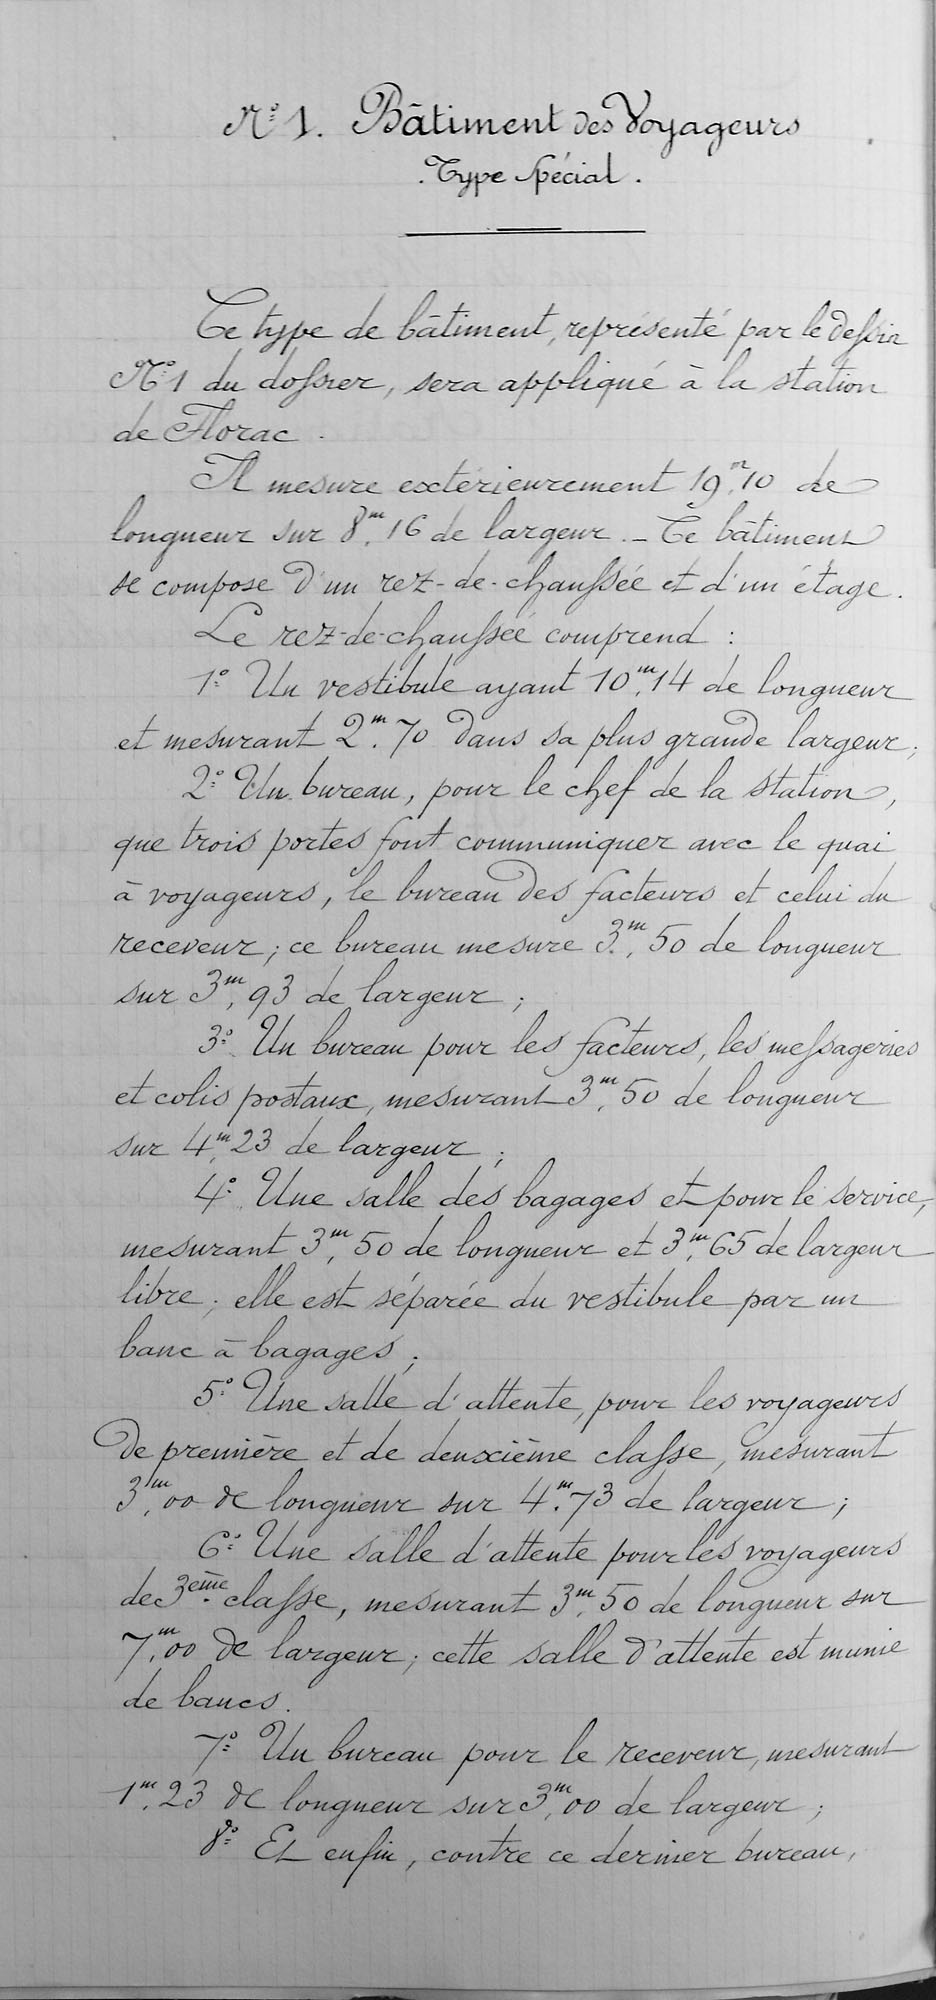 N° 1. Bâtiment des Voyageurs
Type Spécial.
Ce type de bâtiment, représenté par le dessin
N° 1 du dossier, sera appliqué à la station
de Florac.
Il mesure extérieurement 19ᵐ,10 de
longueur sur 8ᵐ,16 de largeur. — Ce bâtiment
se compose d'un rez-de-chaussée et d'un étage.
Le rez-de-chaussée comprend :
1° Un vestibule ayant 10ᵐ,14 de longueur
et mesurant 2ᵐ,70 dans sa plus grande largeur;
2° Un bureau, pour le chef de la station,
que trois portes font communiquer avec le quai
à voyageurs, le bureau des facteurs et celui du
receveur; ce bureau mesure 3ᵐ,50 de longueur
sur 3ᵐ,93 de largeur;
3° Un bureau pour les facteurs, les messageries
et colis postaux, mesurant 3ᵐ,50 de longueur
sur 4ᵐ,23 de largeur;
4° Une salle des bagages et pour le service,
mesurant 3ᵐ,50 de longueur et 3ᵐ,65 de largeur
libre; elle est séparée du vestibule par un
banc à bagages;
5° Une salle d'attente, pour les voyageurs
de première et de deuxième classe, mesurant
3ᵐ,00 de longueur sur 4ᵐ,73 de largeur;
6° Une salle d'attente pour les voyageurs
de 3ème classe, mesurant 3ᵐ,50 de longueur sur
7ᵐ,00 de largeur; cette salle d'attente est munie
de bancs.
7° Un bureau pour le receveur, mesurant
1ᵐ,23 de longueur sur 3ᵐ,00 de largeur;
8° Et enfin, contre ce dernier bureau,